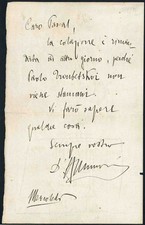 Caro Pascal,
la colazione è riman-
data ad altro giorno, perché
Paolo Troubetzkoi non
viene stamani.
Vi farò sapere
qualche cosa.
Sempre vostro
D'Annunzio
Mercoledì